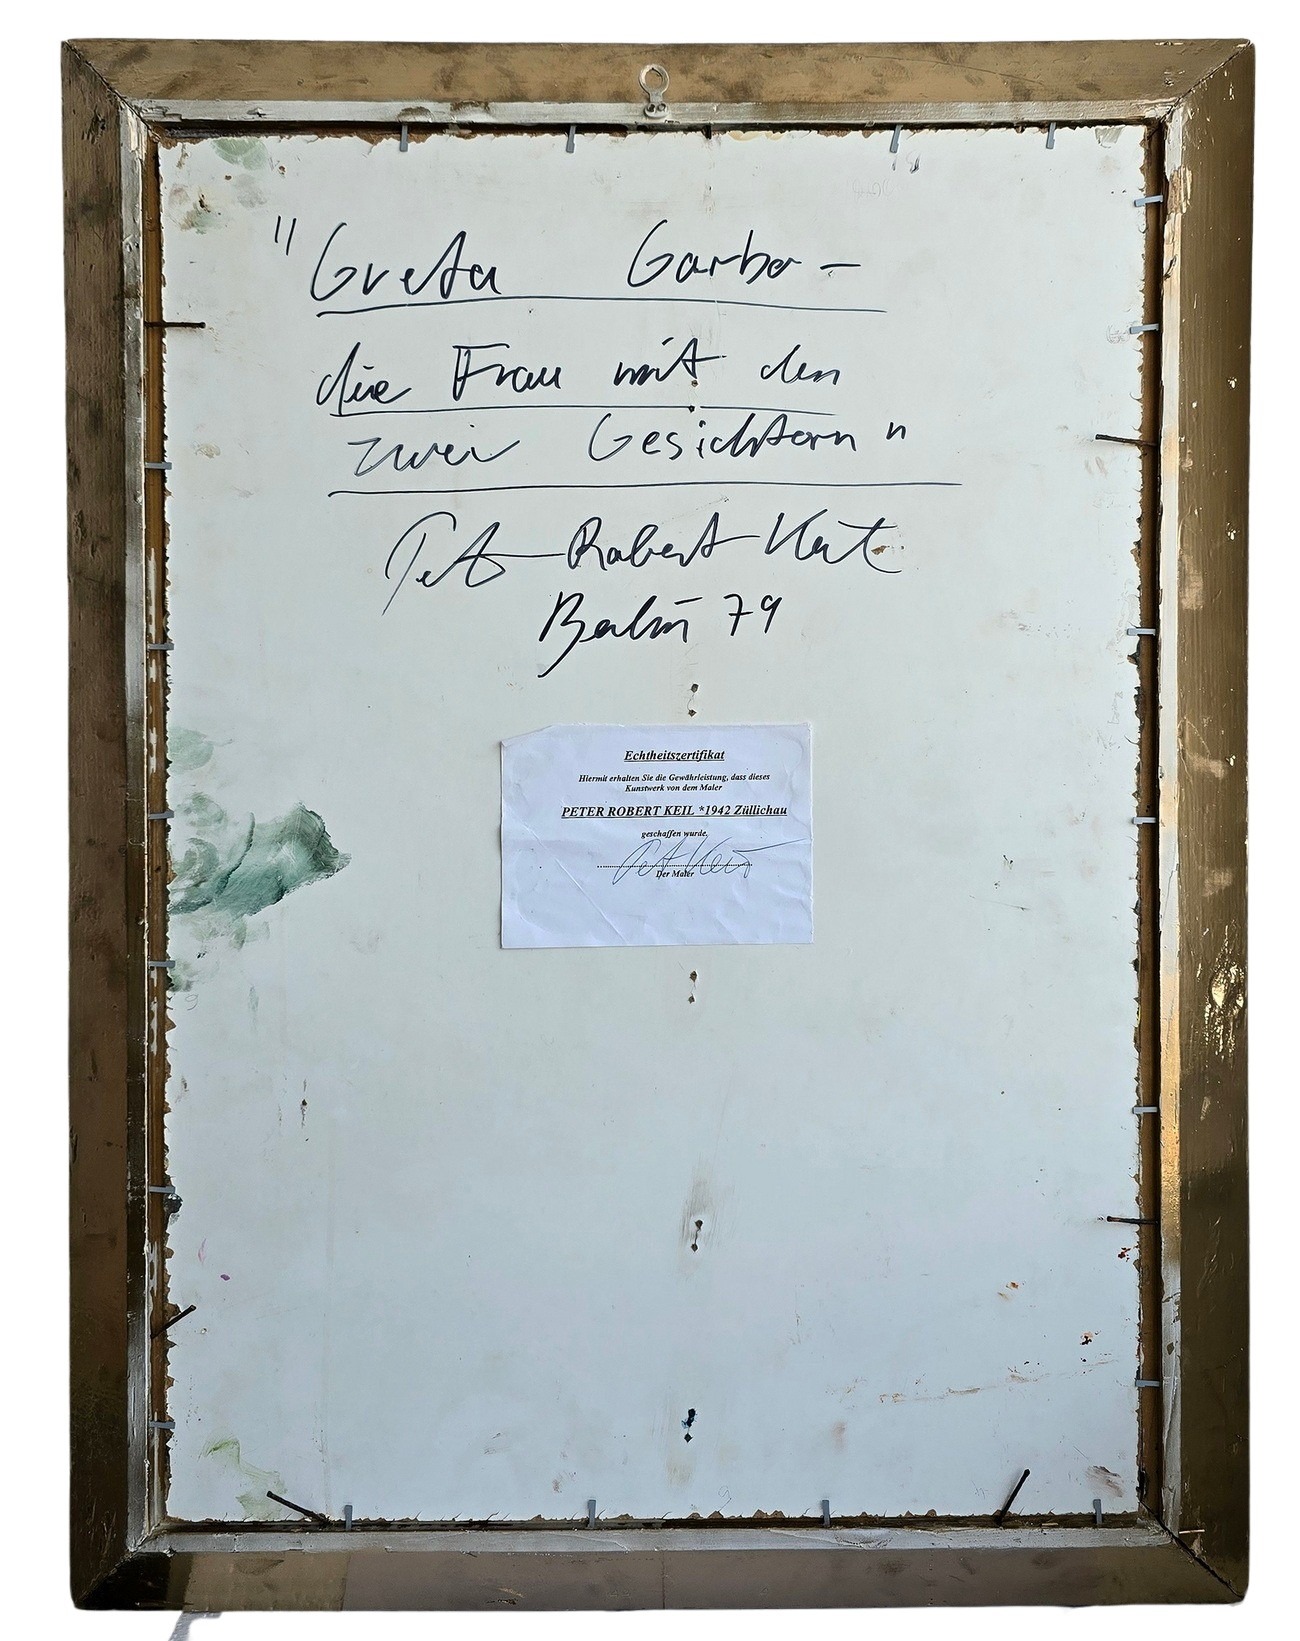 "Greta Garbo -
die Frau mit den
zwei Gesichtern"
Peter Robert Keil
Berlin 79
Echtheitszertifikat
Hiermit erhalten Sie die Gewährleistung, dass dieses
Kunstwerk von dem Maler
PETER ROBERT KEIL *1942 Züllichau
geschaffen wurde.
Peter Keil
Der Maler